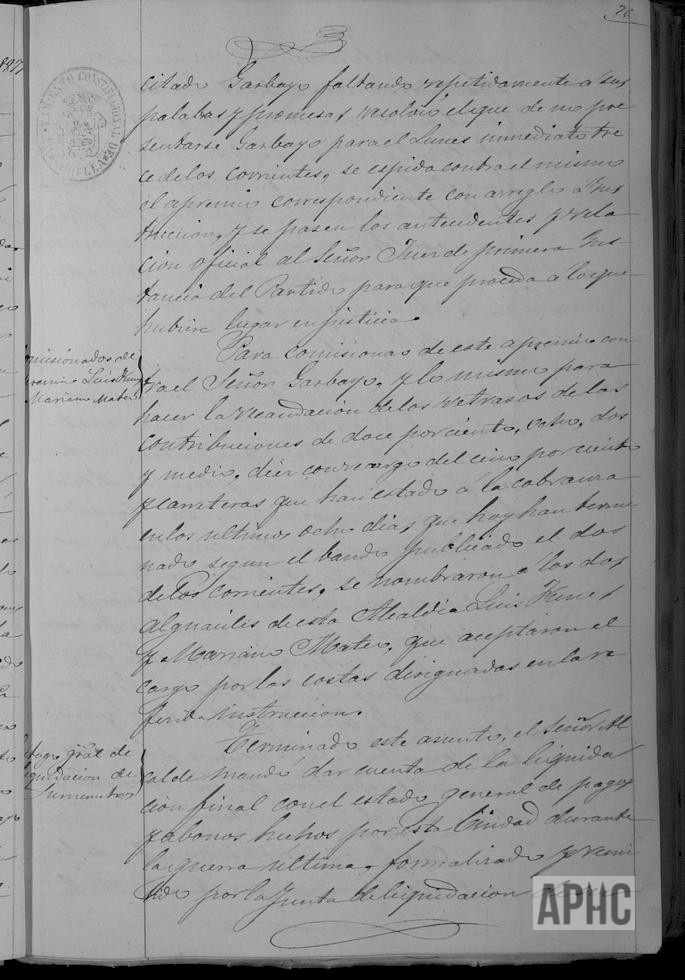 76
1877
AYUNTAMIENTO CONSTITUCIONAL DE
citado Garbayo faltando repetidamente a sus
palabras y promesas resolvió el que de no pre
sentarse Garbayo para el Lunes inmediato tre
ce de los corrientes, se espida contra el mismo
el apremio correspondiente con arreglo a Ins
truccion, y se pasen los antecedentes y rela
cion oficial al Señor Juez de primera Ins
tancia del Partido para que proceda a lo que
hubiere lugar en justicia.
misionados de
premio Luis
Mariano Mateo
Para comisionar de este apremio con
tra el Señor Garbayo, y lo mismo para
hacer la recaudacion de los retrasos de las
contribuciones de doce por ciento, ocho, dos
y medio, diez con recargo del cinco por ciento
y carreteras que han estado a la cobranza
en los ultimos ocho dias, que hoy han termi
nado segun el bando publicado el dos
de los corrientes, se nombraron a los dos
Alguaciles de esta Alcaldia Luis
y Mariano Mateo, que aceptaron el
cargo por las costas designadas en la re
ferida instruccion.
gral de
quidacion de
Suministros
Terminado este asunto, el Señor Al
calde mandó dar cuenta de la liquida
cion final con el estado general de pagos
y abonos hechos por esta Ciudad durante
la guerra ultima, formalizado y remi
tido por la Junta de liquidacion
APHC